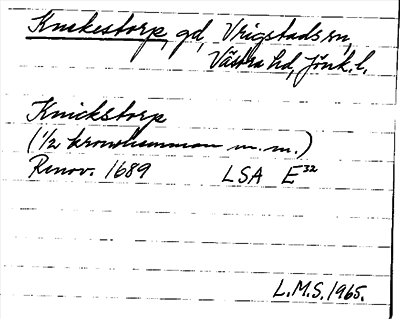 Knekestorp, gd, Vrigstads sn,
Västra hd, Jönk. l.
Knickstorp
(1/2 kronohemman m.m.)
Renov. 1689 LSA E³²
L.M.S. 1965.